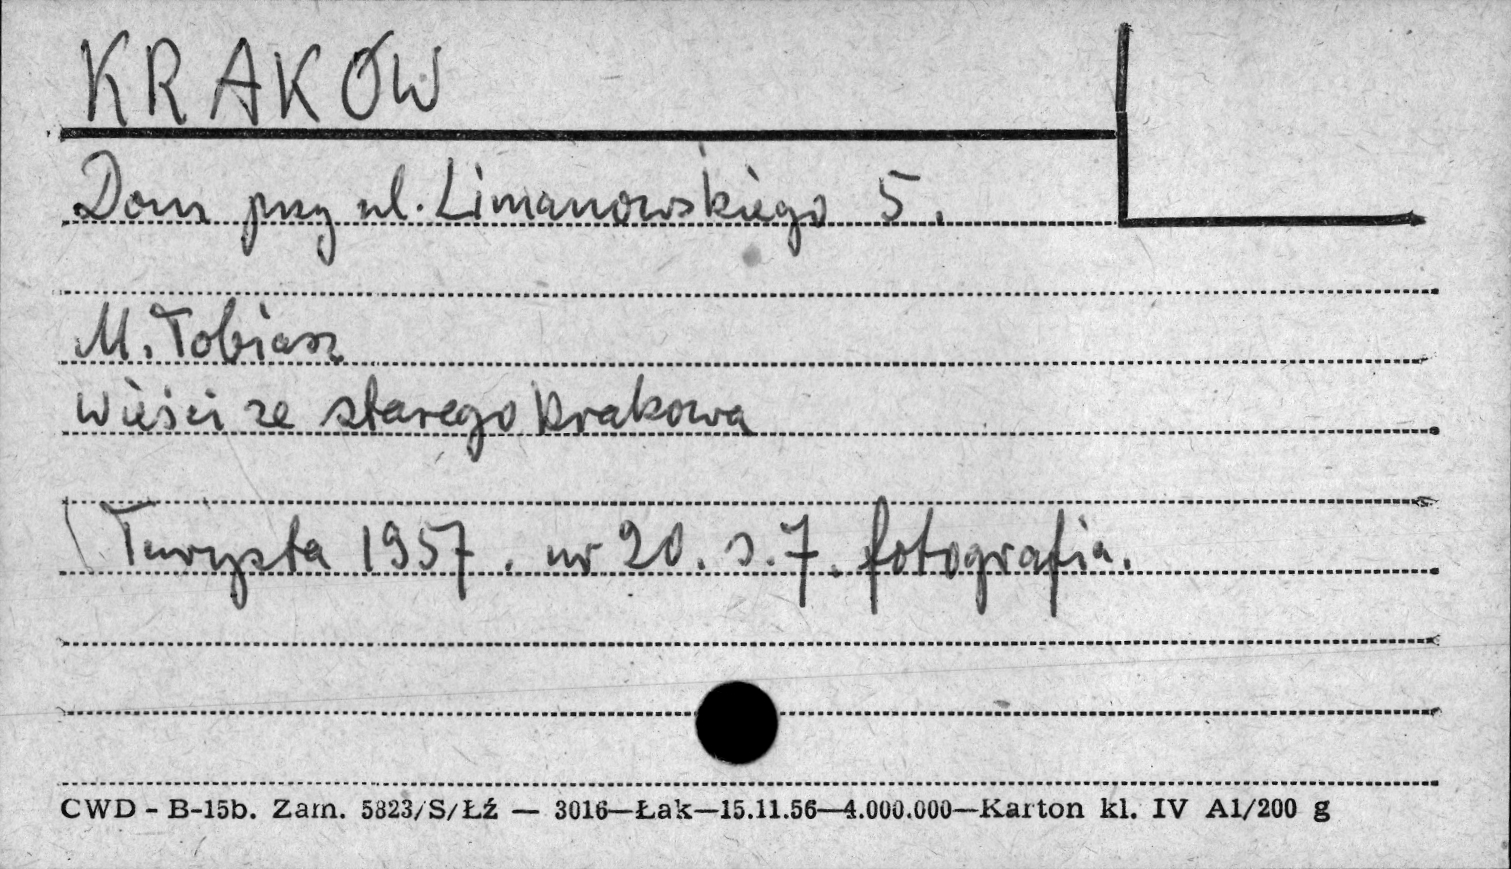 KRAKÓW
Dom przy ul. Limanowskiego 5.
M. Tobiasz
Wieści ze starego Krakowa
Turysta 1957. nr 20. s. 7. fotografia.
CWD - B-15b. Zam. 5823/S/Łź — 3016—Łak—15.11.56—4.000.000—Karton kl. IV A1/200 g